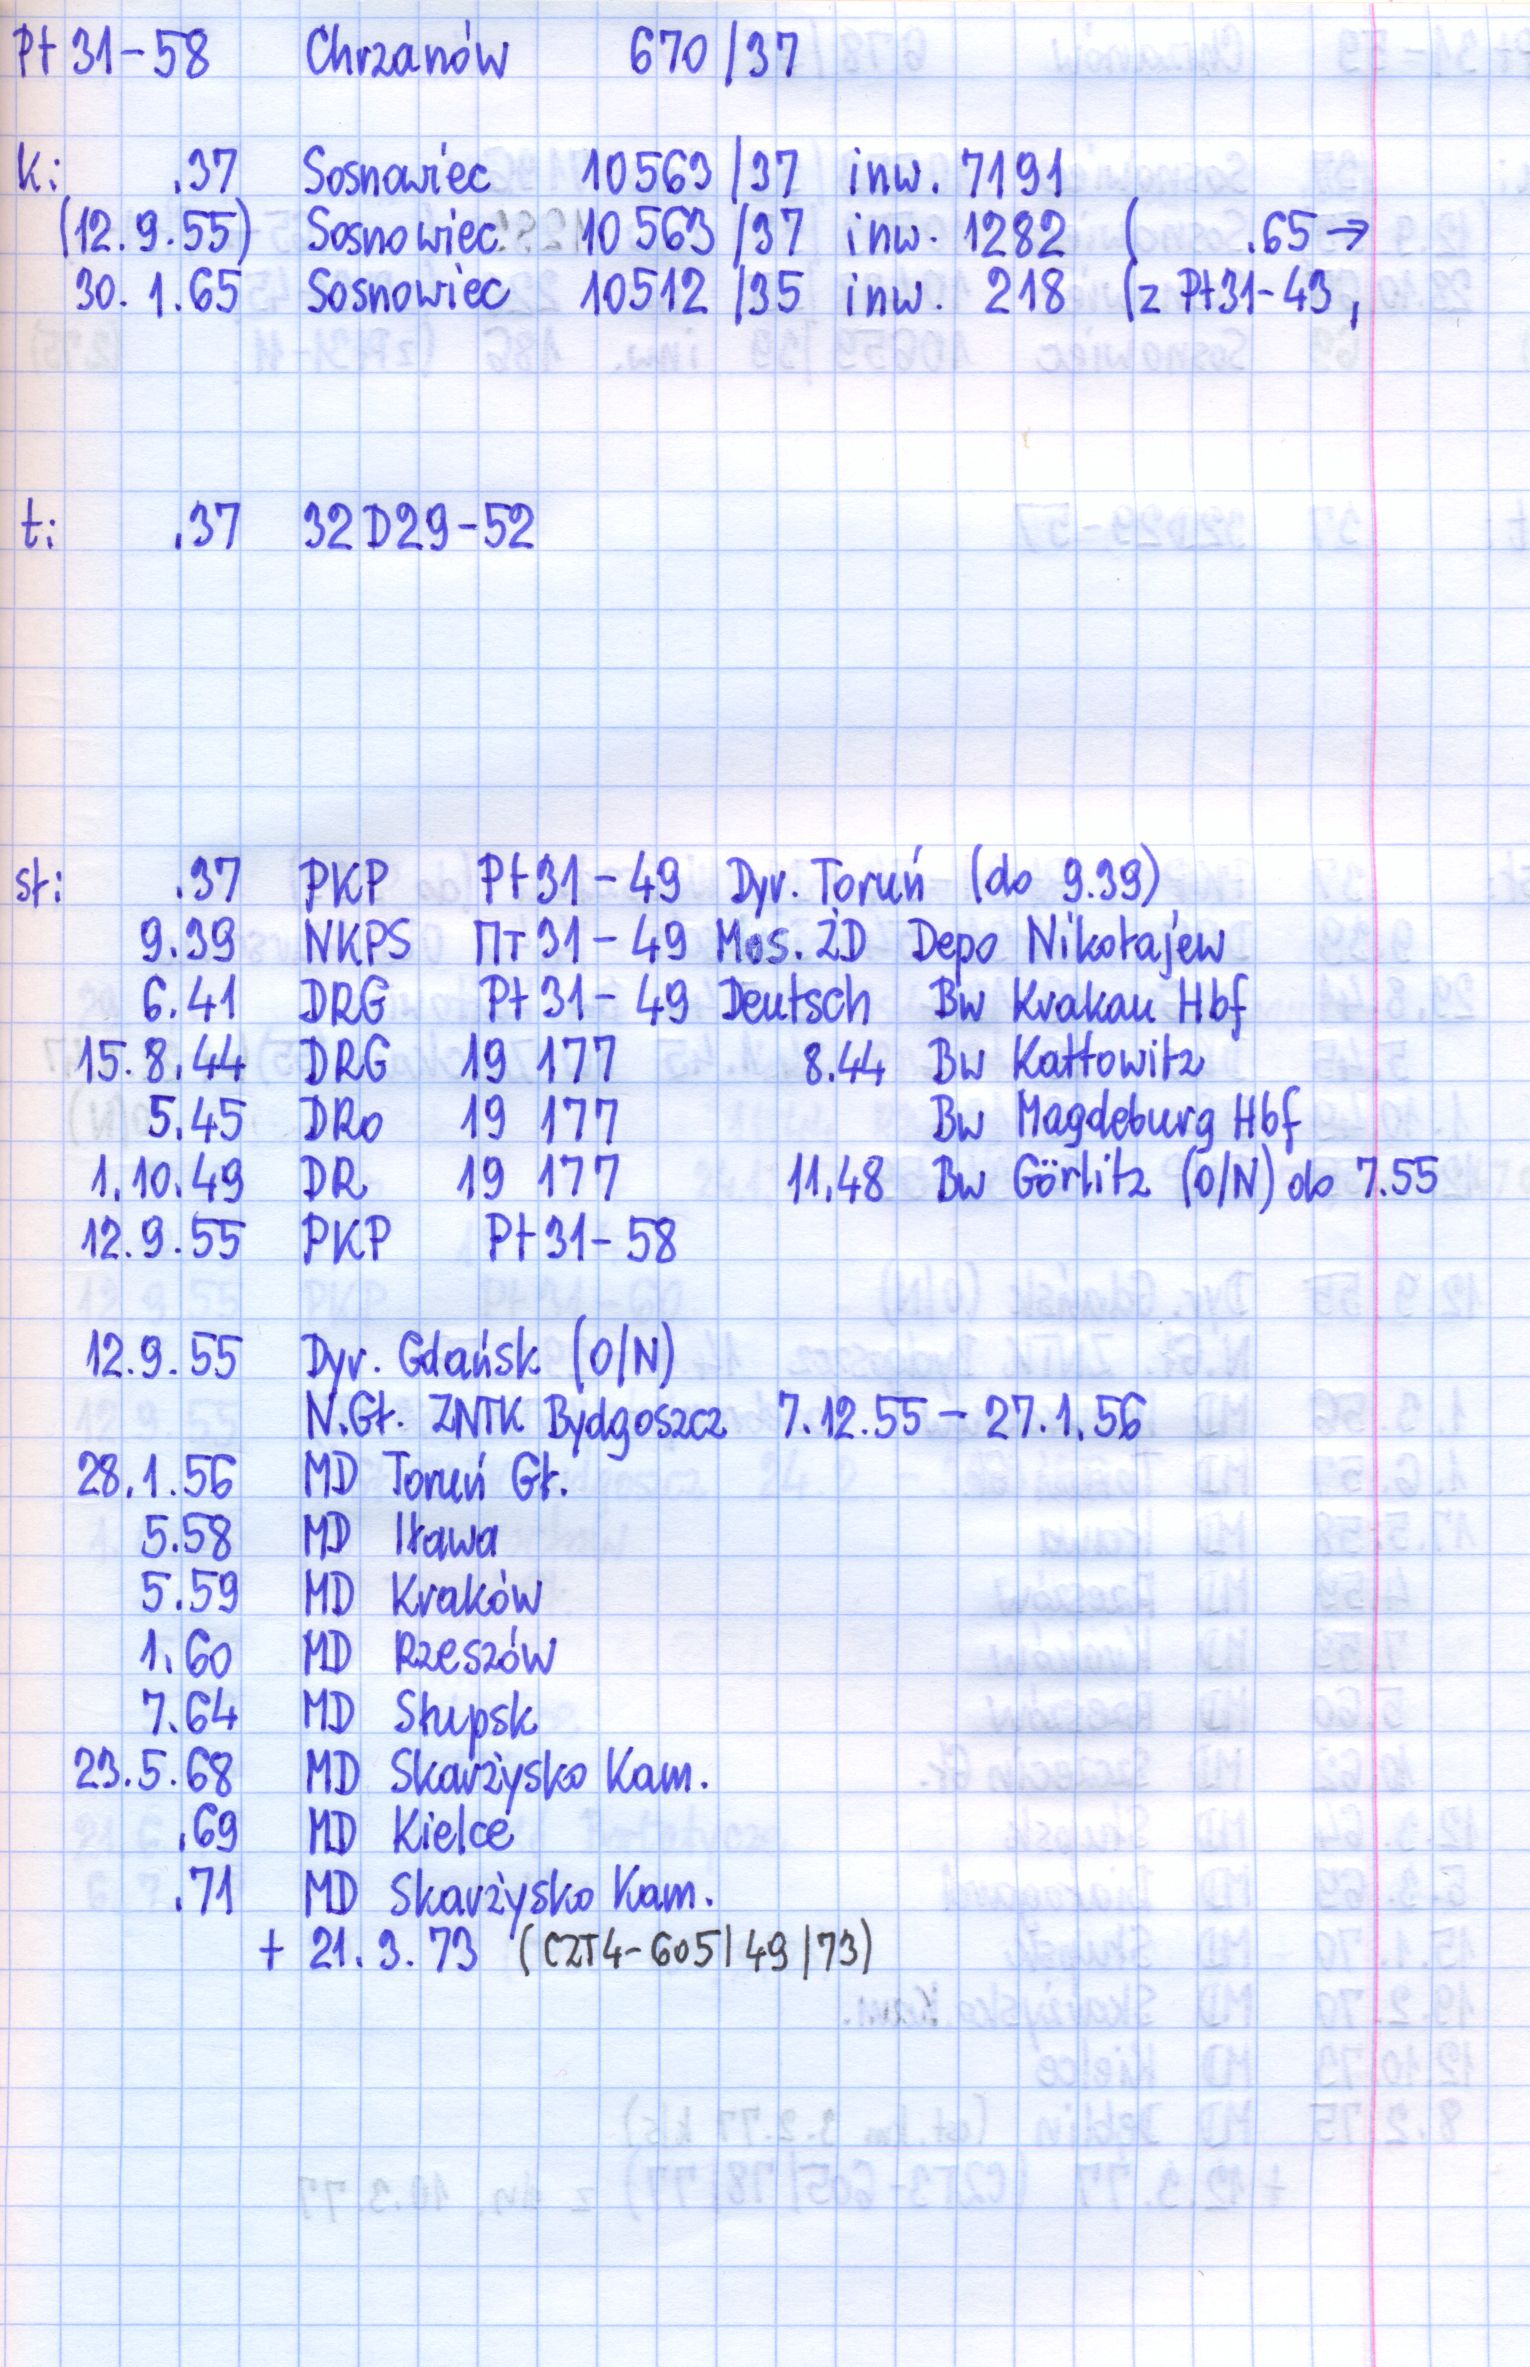 Pt 31-58 Chrzanów 670/37
k: .37 Sosnowiec 10563/37 inw. 7191
(12.9.55) Sosnowiec 10563/37 inw. 1282 ( .65 →
30.1.65 Sosnowiec 10512/35 inw. 218 (z Pt31-43,
t: .37 32D29-52
st: .37 PKP Pt31-49 Dyr. Toruń (do 9.39)
9.39 NKPS Пт31-49 Mos. ŻD Depo Nikołajew
6.41 DRG Pt31-49 Deutsch Bw Krakau Hbf
15.8.44 DRG 19 177 8.44 Bw Kattowitz
5.45 DRo 19 177 Bw Magdeburg Hbf
1.10.49 DR 19 177 11.48 Bw Görlitz (O/N) do 7.55
12.9.55 PKP Pt31-58
12.9.55 Dyr. Gdańsk (O/N)
N.Gł. ZNTK Bydgoszcz 7.12.55 - 27.1.56
28.1.56 MD Toruń Gł.
5.58 MD Iława
5.59 MD Kraków
1.60 MD Rzeszów
7.64 MD Słupsk
23.5.68 MD Skarżysko Kam.
.69 MD Kielce
.71 MD Skarżysko Kam.
+ 21.3.73 (CZT4-605/49/73)